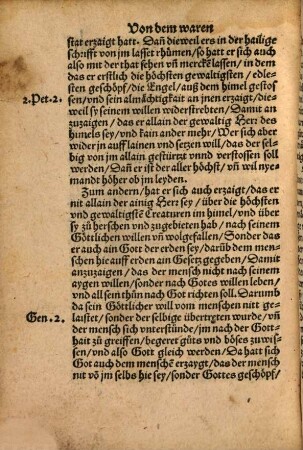 Von dem waren
stat erzaigt hatt. Dañ dieweil ers in der hailige
schrifft von jm lasset rhůmen/so hatt er sich auch
also mit der that sehen vñ mercke lassen/in dem
das er erstlich die höchsten gewaltigsten/edle-
sten geschöpf/die Engel/auß dem himel gestos
2.Pet.2. sen/vnd sein almächtikait an jnen erzaigt/die-
weil sy seinem willen widerstrebten/Damit an
zuzaigen/das er allain der gewaltig Herr des
himels sey/vnd kain ander mehr/Wer sich aber
wider in auff lainen vnd setzen will/das der sel
big von jm allain gestürtzt vnnd verstossen soll
werden/Dañ er ist der aller höchst/vñ wil nye-
mandt höher ob jm leyden.
Zum andern/hat er sich auch erzaigt/das er
nit allain der ainig Herr sey/über die höchsten
vnd gewaltigste Creaturen im himel/vnd über
sy zů herschen vnd zugebieten hab/nach seinem
Göttlichen willen vñ wolgefallen/Sonder das
er auch ain Gott der erden sey/darůb dem men-
schen hie auff erden ain Gesetz gegeben/Damit
anzuzaigen/das der mensch nicht nach seinem
aygen willen/sonder nach Gottes willen leben/
vnd all sein thůn nach Got richten soll. Darumb
da sein Göttlicher will vom menschen nitt ge-
Gen.2. laistet/sonder der selbige übertrztten wurde/vñ
der mensch sich vnterstůnde/jm nach der Gott-
hait zu greiffen/begeret gůts vnd böses zuwis-
sen/vnd also Gott gleich werden/Da hatt sich
Got auch dem menschē erzaygt/das der mensch
nit vō jm selbs hie sey/sonder Gottes geschöpf/